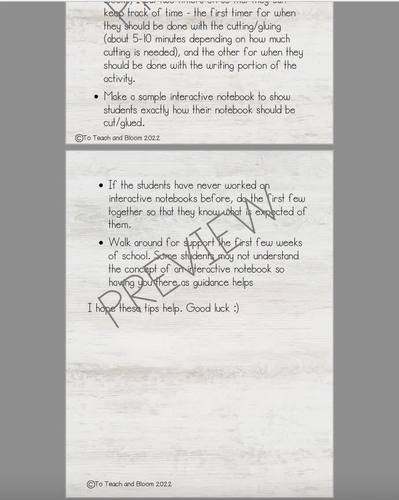 keep track of time - the first timer for when
they should be done with the cutting/gluing
(about 5-10 minutes depending on how much
cutting is needed), and the other for when they
should be done with the writing portion of the
activity.
• Make a sample interactive notebook to show
students exactly how their notebook should be
cut/glued.
©To Teach and Bloom 2022
• If the students have never worked on
interactive notebooks before, do the first few
together so that they know what is expected of
them.
• Walk around for support the first few weeks
of school. Some students may not understand
the concept of an interactive notebook so
having you there as guidance helps
I hope these tips help. Good luck :)
PREVIEW
©To Teach and Bloom 2022